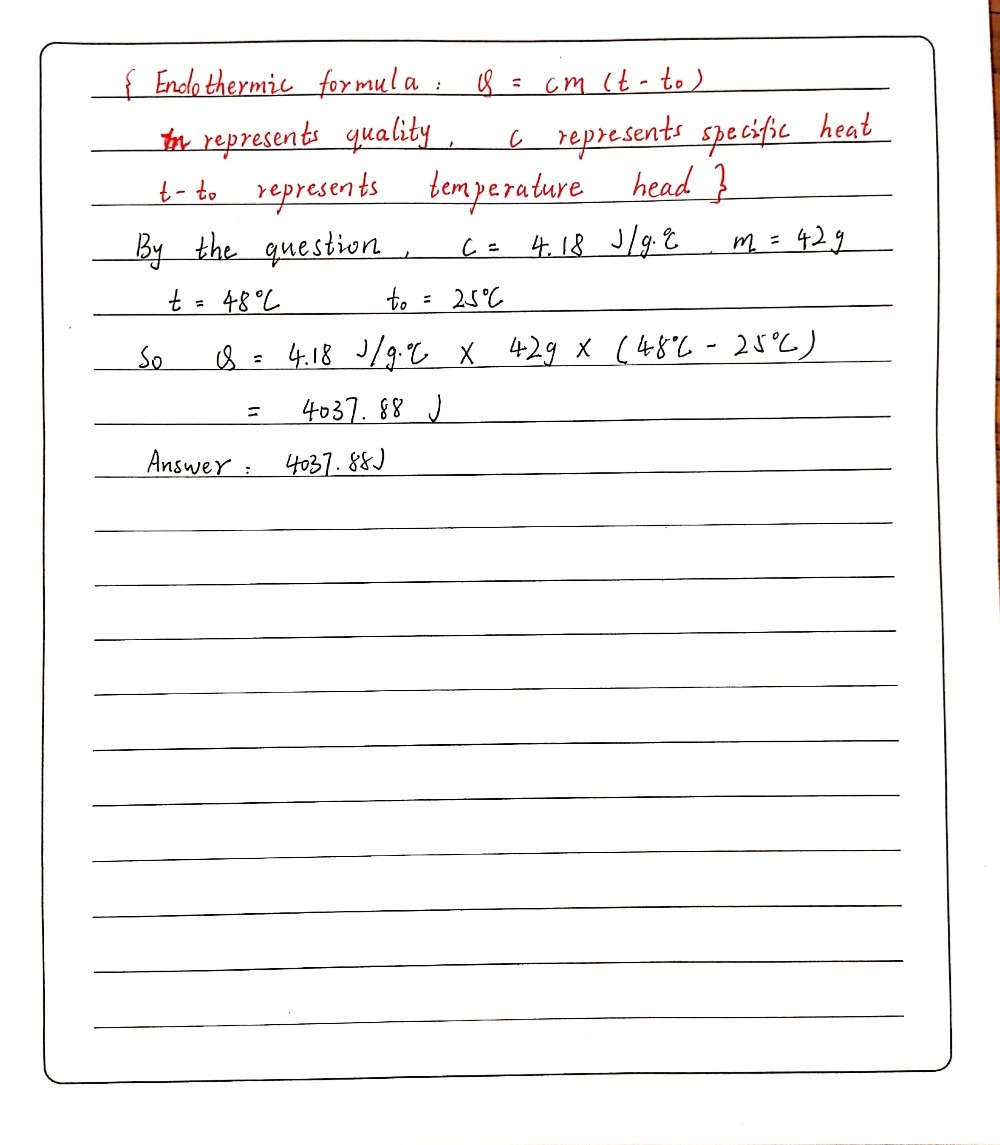 { Endothermic formula : Q = cm (t - t₀)
m represents quality, c represents specific heat
t - t₀ represents temperature head }
By the question, c = 4.18 J/g·℃ m = 42g
t = 48℃ t₀ = 25℃
So Q = 4.18 J/g·℃ × 42g × (48℃ - 25℃)
= 4037.88 J
Answer : 4037.88J